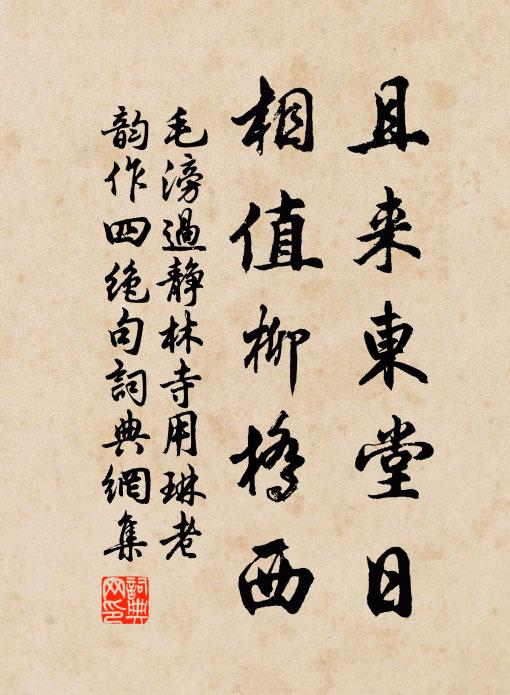 且来東堂日
相值柳橋西
毛滂過靜林寺用琳老
韵作四絶句詞典網集
詞典网印